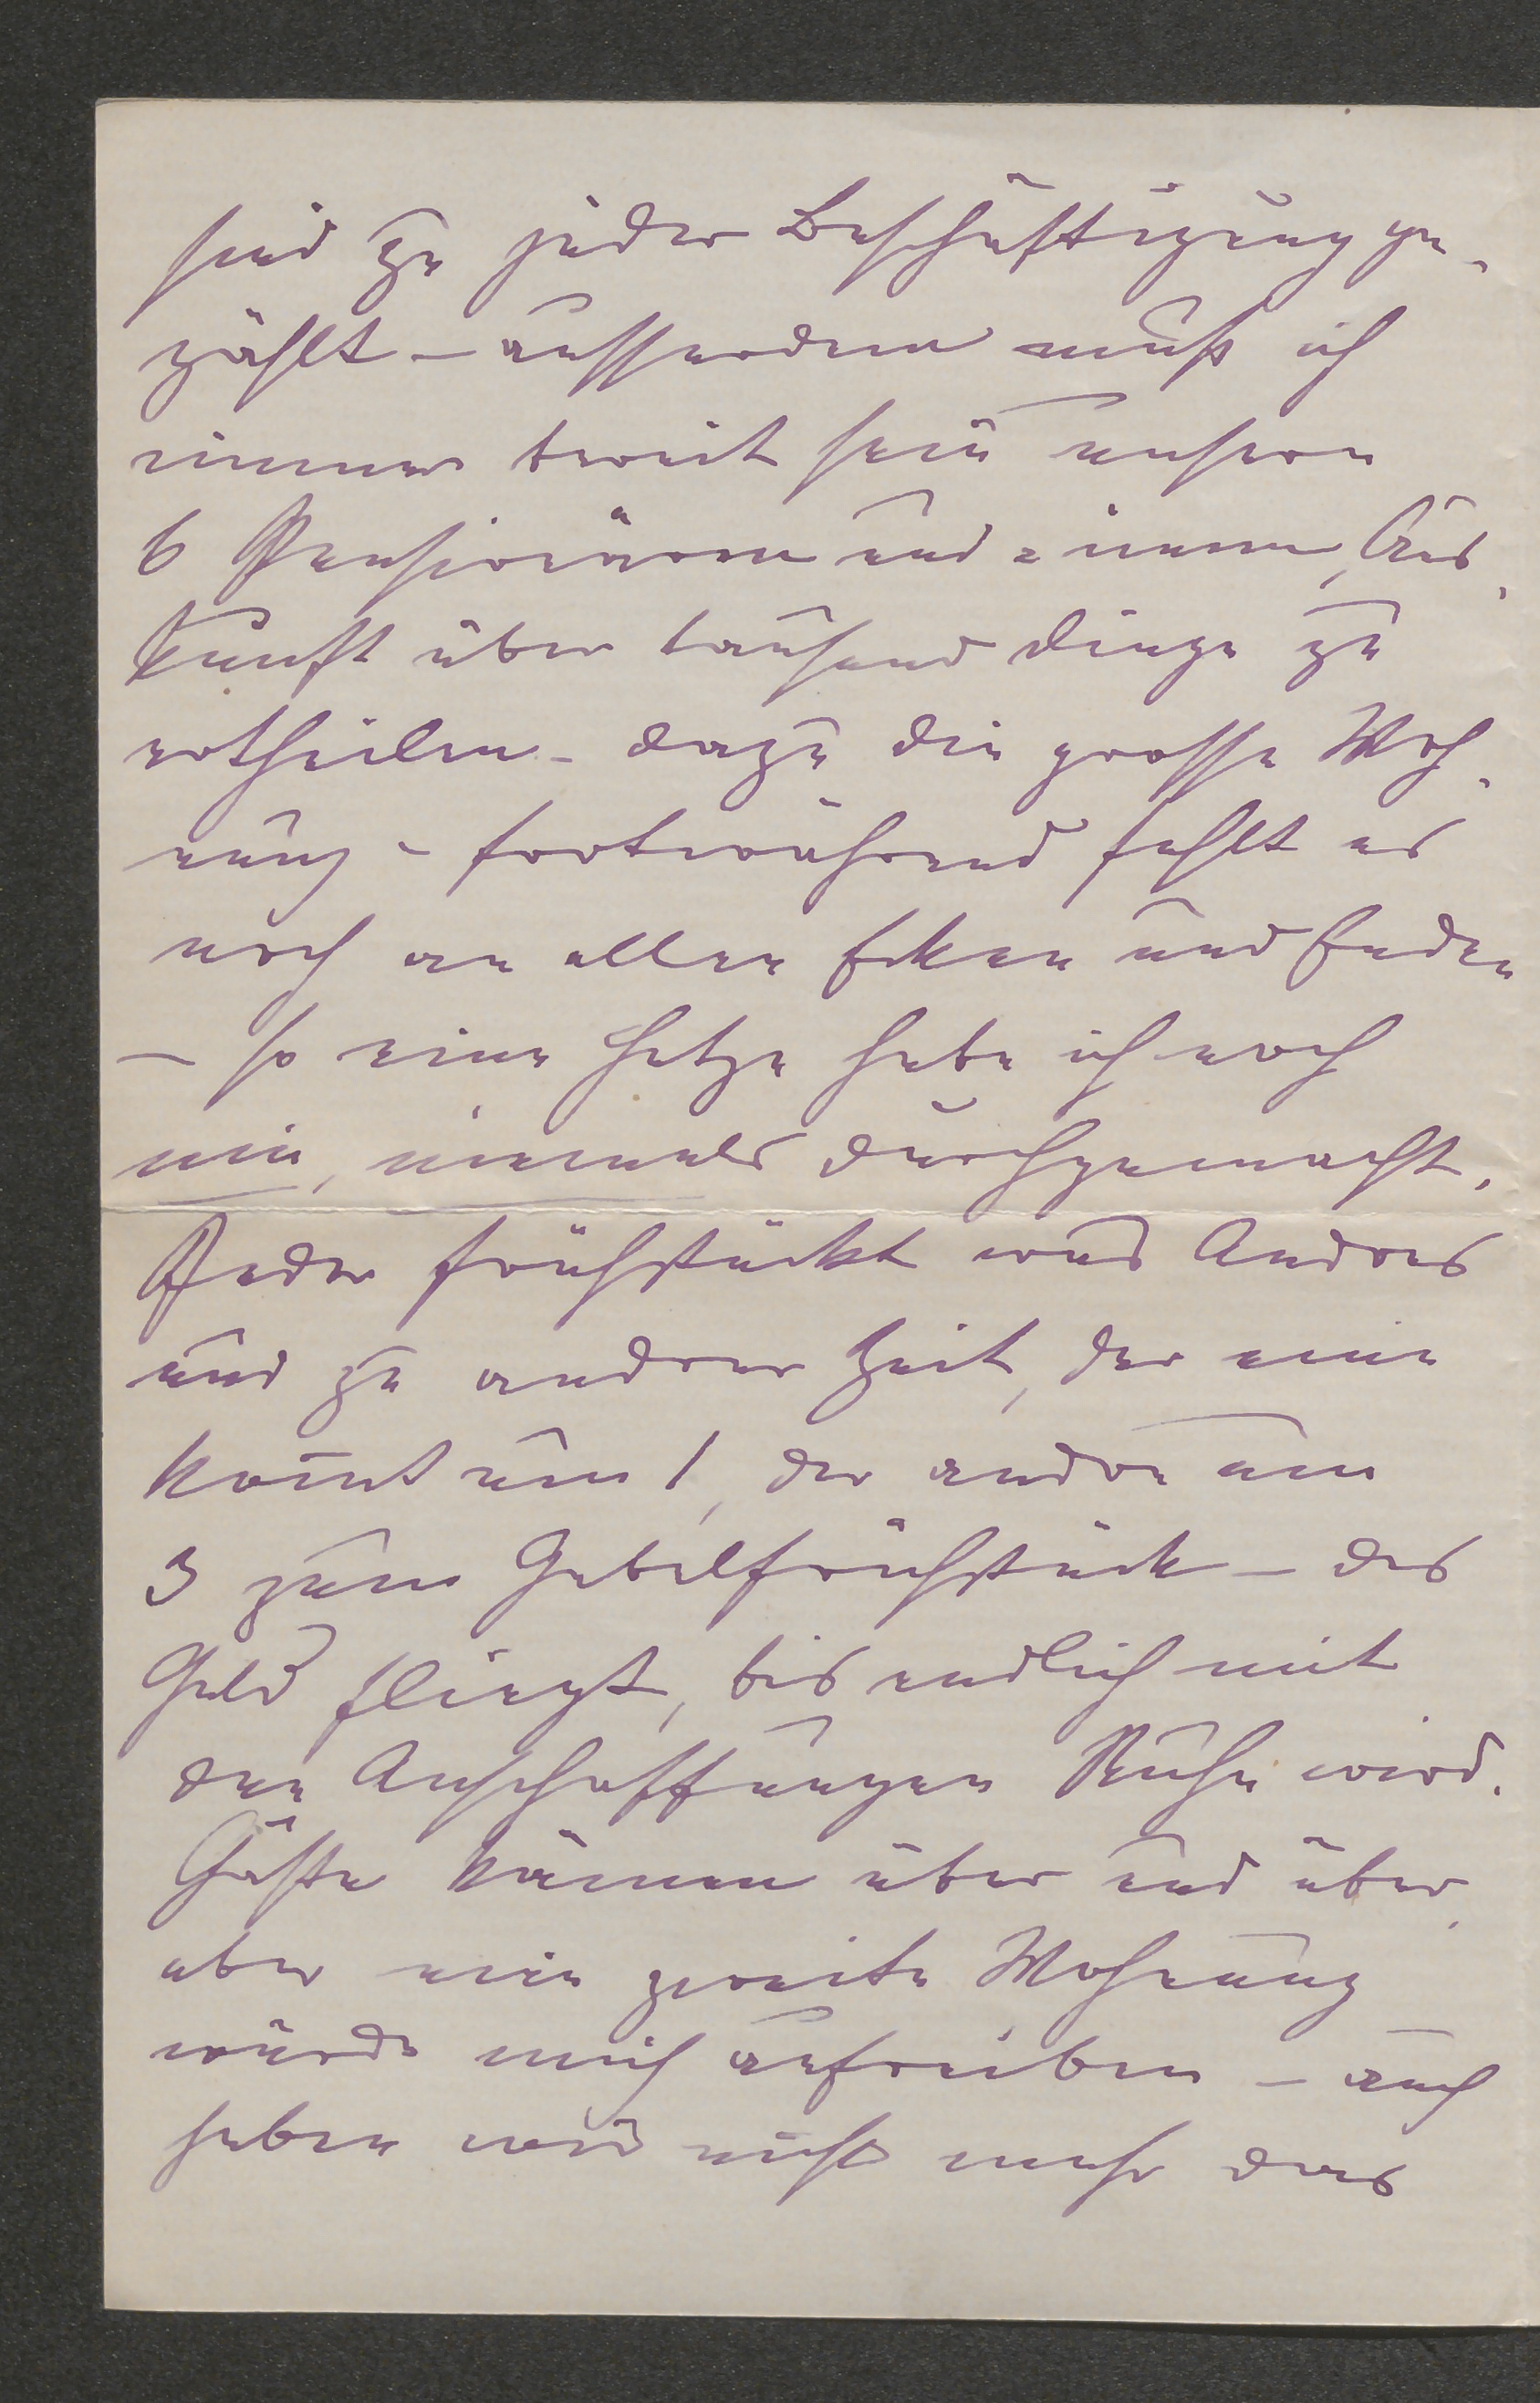 sind zu jeder Beschäftigung ge-
zählt – aussserdem muß ich
immer bereit sein unsern
6 Pensionären und =innen, Aus-
kunft über tausend Dinge zu
ertheilen – dazu die grosse Woh-
nung – fortwährend fehlt es
noch an allen Ecken und Enden
– so eine Hetze habe ich noch
nie, niemals durchgemacht.
Jeder frühstückt was Andres
und zu andrer Zeit, der eine
kom̄t um 1, der andre um
3 zum Gabelfrühstück – das
Geld fliegt, bis endlich mit
den Anschaffungen Ruhe wird.
Gäste kämen über und über,
aber eine zweite Wohnung
würde mich aufreiben – auch
haben wir nicht mehr das